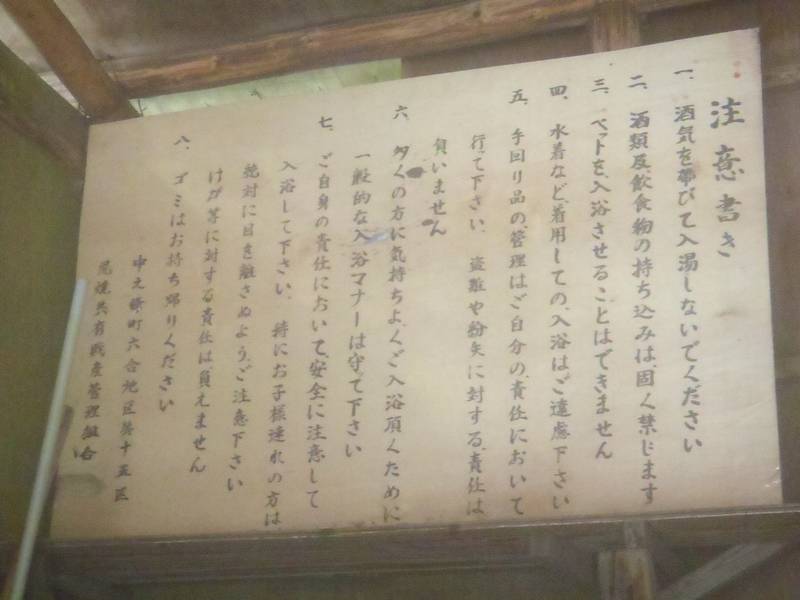 注意書き
一、酒気を帯びて入湯しないでください
二、酒類及飲食物の持ち込みは、固く禁じます
三、ペットを、入浴させることはできません
四、水着など、着用しての、入浴はご遠慮下さい
五、手回り品の管理はご自分の、責任において
行って下さい、盗難や紛失に対する、責任は
負いません
六、多くの方に気持ちよく、ご入浴頂くために
一般的な入浴マナーは守って下さい
七、ご自身の責任において、安全に注意して
入浴して下さい、特にお子様連れの方は
絶対に目を離さぬよう、ご注意下さい
けが等に対する責任は、負えません
八、ゴミはお持ち帰りください
中之条町六合地区第十五区
尻焼共有財産管理組合